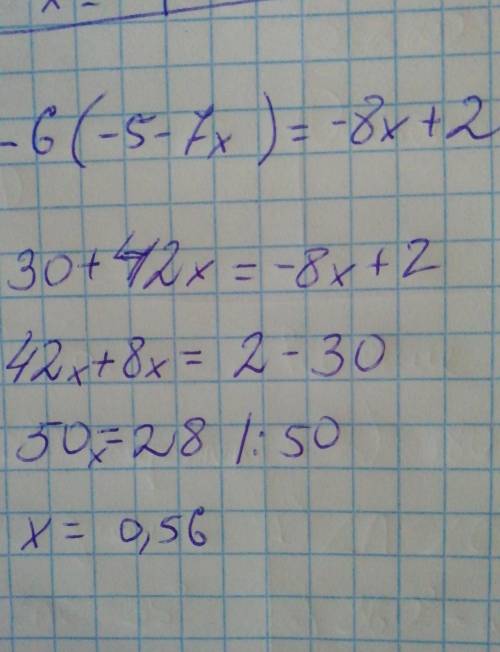 -6(-5-7x)=-8x+2
30+42x=-8x+2
42x+8x=2-30
50x=28 /:50
x=0,56